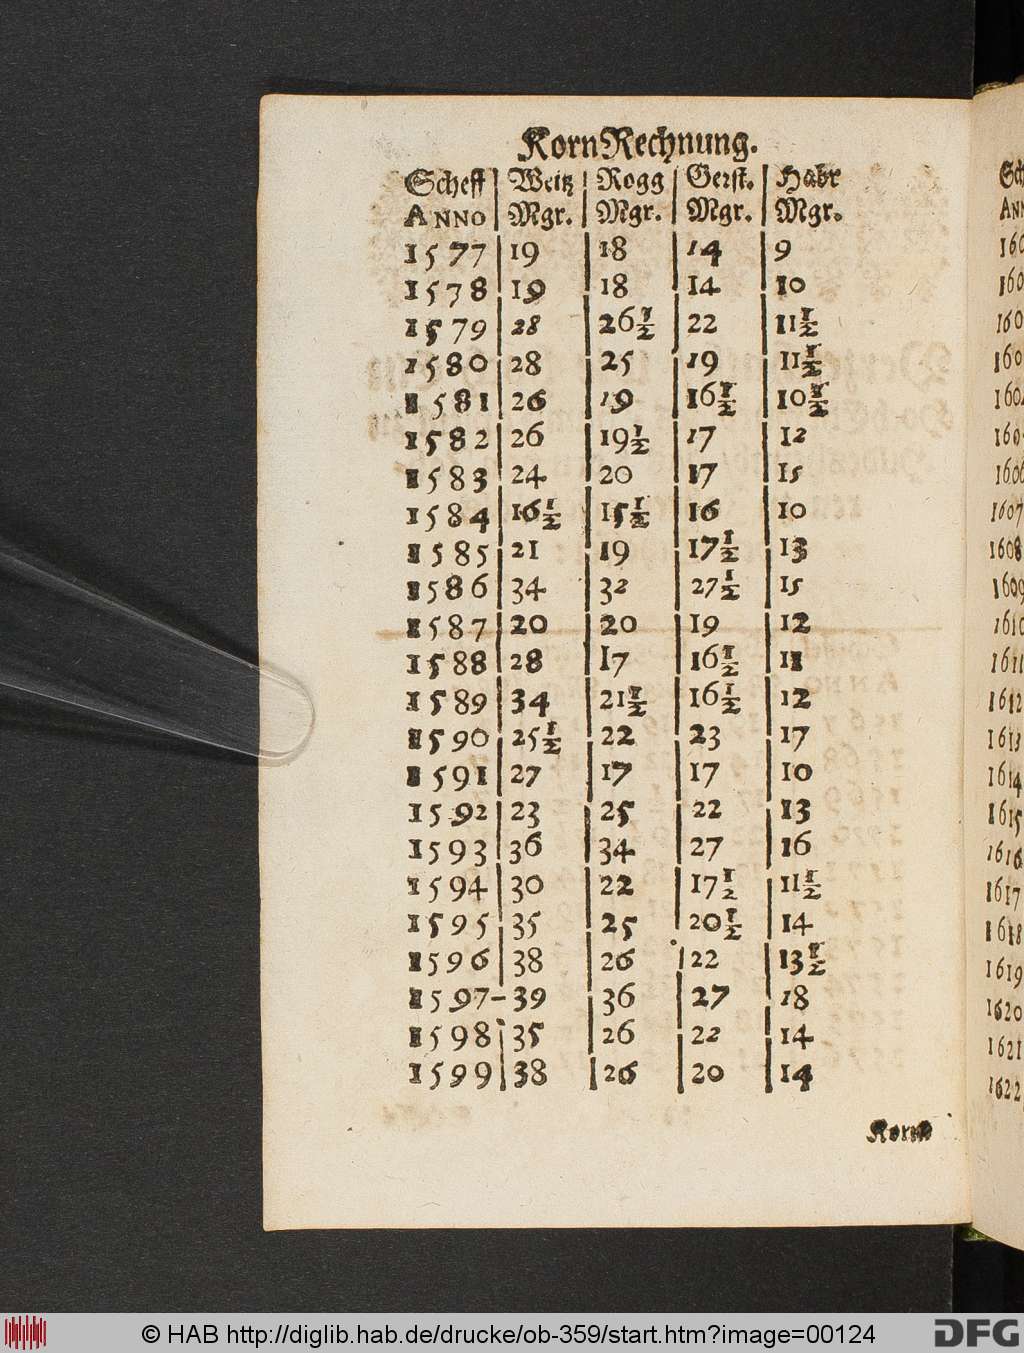 KornRechnung.
Scheff | Weitz | Rogg | Gerst. | Habr
ANNO | Mgr. | Mgr. | Mgr. | Mgr.
1577 | 19 | 18 | 14 | 9
1578 | 19 | 18 | 14 | 10
1579 | 28 | 26½ | 22 | 11½
1580 | 28 | 25 | 19 | 11½
1581 | 26 | 19 | 16½ | 10½
1582 | 26 | 19½ | 17 | 12
1583 | 24 | 20 | 17 | 15
1584 | 16½ | 15½ | 16 | 10
1585 | 21 | 19 | 17½ | 13
1586 | 34 | 32 | 27½ | 15
1587 | 20 | 20 | 19 | 12
1588 | 28 | 17 | 16½ | 11
1589 | 34 | 21½ | 16½ | 12
1590 | 25½ | 22 | 23 | 17
1591 | 27 | 17 | 17 | 10
1592 | 23 | 25 | 22 | 13
1593 | 36 | 34 | 27 | 16
1594 | 30 | 22 | 17½ | 11½
1595 | 35 | 25 | 20½ | 14
1596 | 38 | 26 | 22 | 13½
1597- 39 | 36 | 27 | 18
1598 | 35 | 26 | 22 | 14
1599 | 38 | 26 | 20 | 14
Korn
1607
1608
1609
1611
1612
1613
1614
1615
1616
1617
1618
1619
1620
1621
1622
© HAB http://diglib.hab.de/drucke/ob-359/start.htm?image=00124
DFG